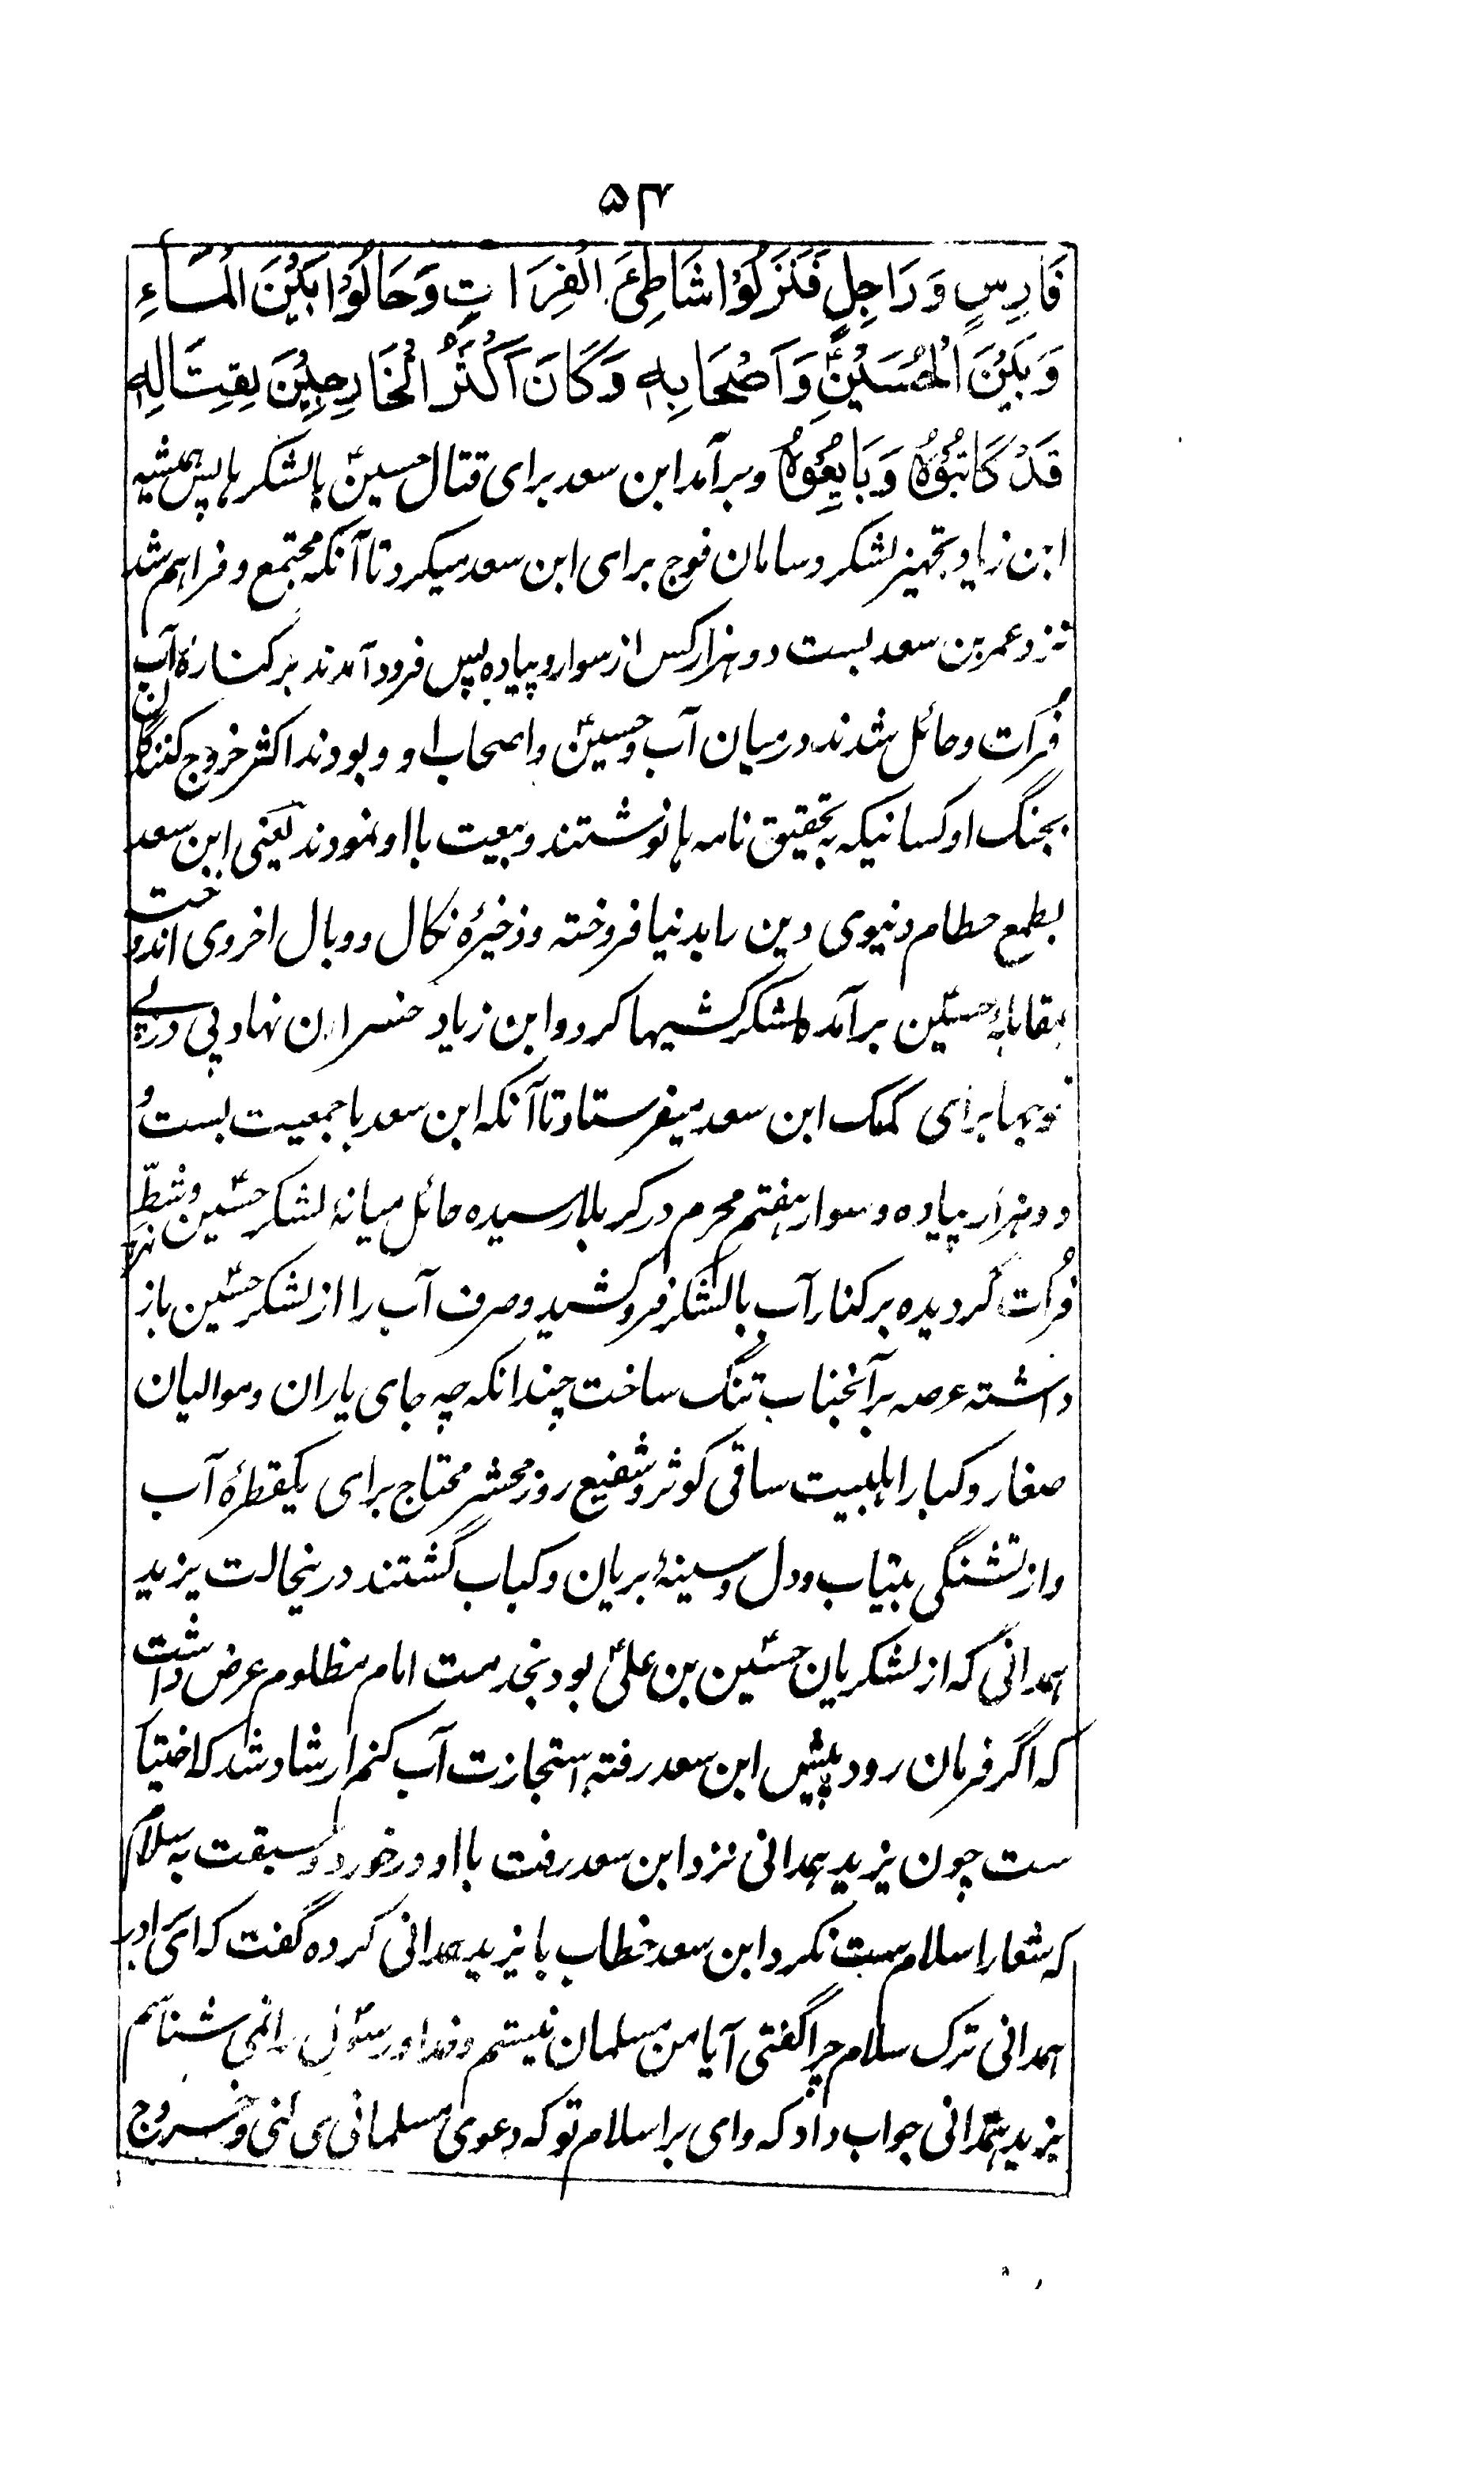 ۵۴
فَارِسٍ وَرَاجِلٍ فَنَزَلُوْا شَاطِئَ الْفِرَاتِ وَحَالُوْا بَيْنَ الْمَاءِ
وَبَيْنَ الْحُسَيْنِؑ وَاَصْحَابِهٖ وَكَانَ اَكْثَرُ الْخَارِجِيْنَ بِقِتَالِهٖ
قَدْ كَاتَبُوْهُ وَبَايِعُوْهُ وبرآمد ابن سعد برای قتال حسینؑ بالشکرها پس همیشه
ابن زیاد تجهیز لشکر و سامان فوج برای ابن سعد میکرد تا آنکه مجتمع و فراهم شد
نزد عمر بن سعد بست دو هزار کس از سوار و پیاده پس فرود آمدند بر کنارهٔ آب
فُرات و حائل شدند درمیان آب و حسینؑ و اصحاب او و بودند اکثر خروج کنندگان
بجنگ او کسانیکه به تحقیق نامه ها نوشتند و بیعت با او نمودند یعنی ابن سعد
بطمع حطام دنیوی دین را بدنیا فروخته و ذخیرهٔ نکال و وبال اخروی اندوخت
بمقابلهٔ حسینؑ برآمده لشکر کشیها کرد و ابن زیاد خسران نهاد پی درپے
فوجها برای کمک ابن سعد میفرستاد تا آنکه ابن سعد با جمعیت بست و
دو هزار پیاده و سوار هفتم محرم در کربلا رسیده حائل میانهٔ لشکر حسینؑ و شطّ نهر
فُرات گردیده بر کنار آب بالشکر فروکشید و صرف آب را از لشکر حسینؑ باز
داشته عرصه بر آنجناب تنگ ساخت چندانکه چه جای یاران و موالیان
صغار و کبار اہلبیت ساقی کوثر و شفیع روز محشر محتاج برای یکقطرهٔ آب
و از تشنگی بیتاب و دل و سینهٔ بریان و کباب گشتند درینحالت یزید
ہمدانی که از لشکریان حسینؑ بن علیؑ بود بخدمت امام مظلوم عرض داشت
که اگر فرمان رود پیش ابن سعد رفته استجازت آب کنم ارشاد شد که اختیا
ست چون یزید ہمدانی نزد ابن سعد رفت با او درخورد و سبقت به سلام
که شعار اسلام ست نکرد ابن سعد خطاب با یزید ہمدانی کرده گفت که ای
ہمدانی ترک سلام چرا گفتی آیا من مسلمان نیستم و خدا و رسولؐ را نمی شناسم
یزید ہمدانی جواب داد که وای بر اسلام تو که دعوی مسلمانی می کنی و خروج